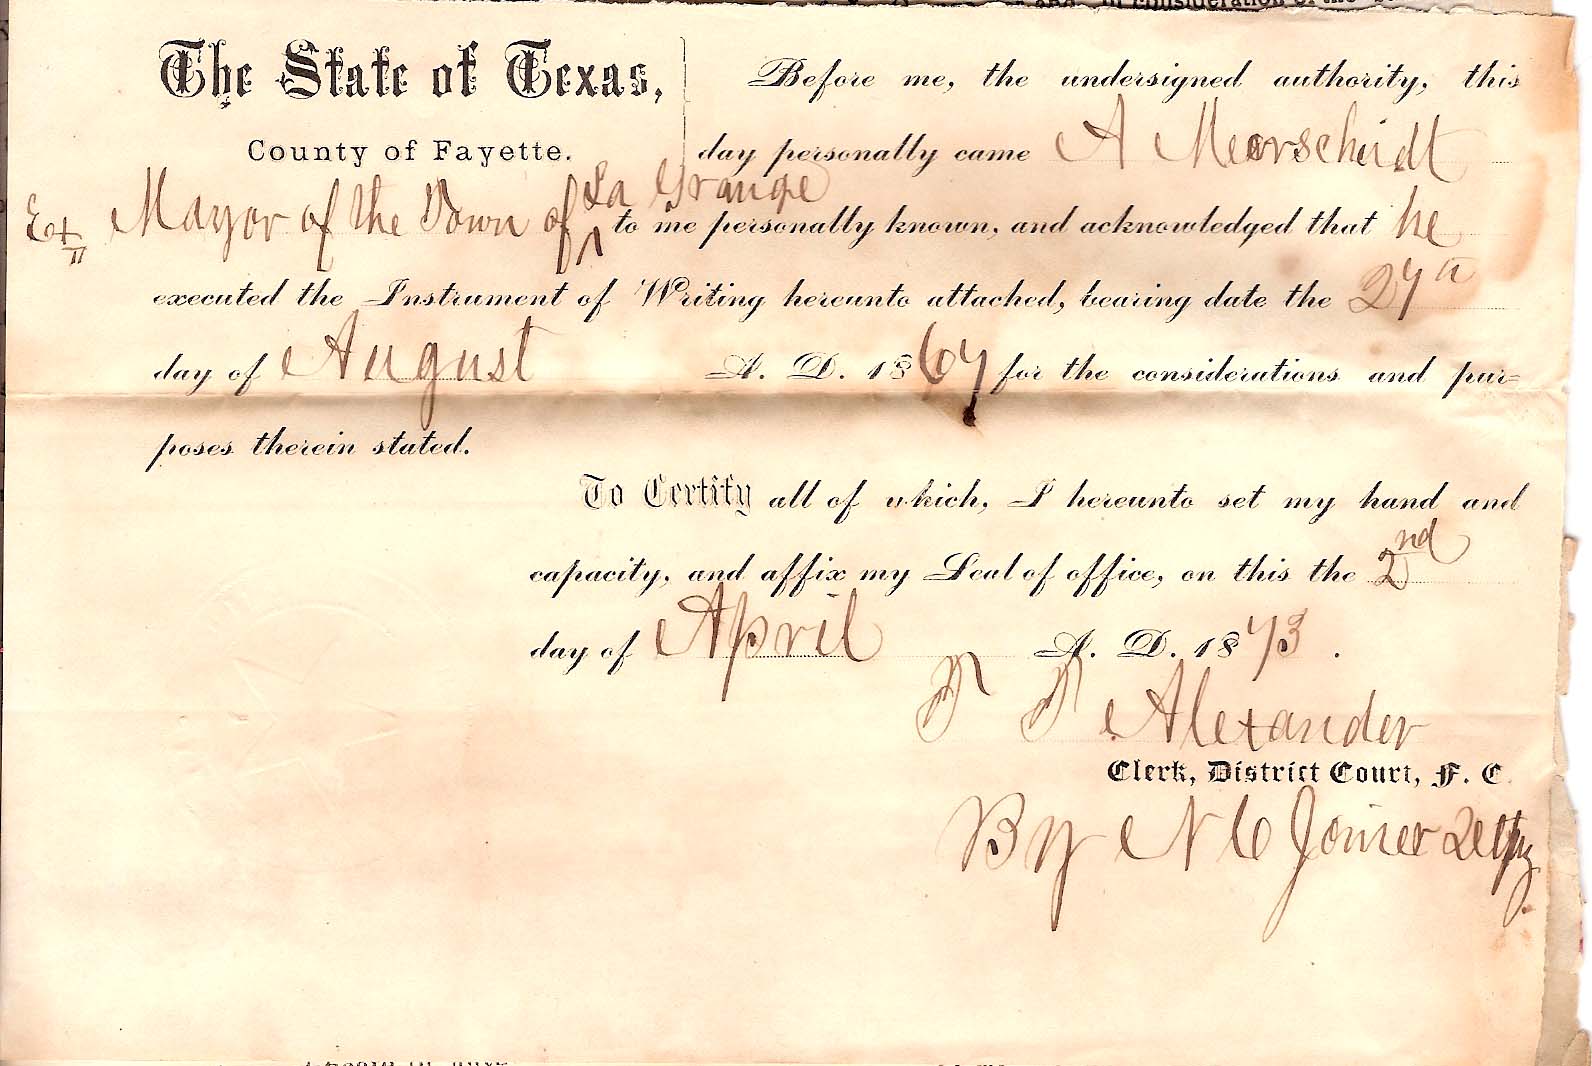 in consideration of the
The State of Texas,
County of Fayette.
Before me, the undersigned authority, this
day personally came A Meerscheidt
Ex Mayor of the Town of La Grange to me personally known, and acknowledged that he
executed the Instrument of Writing hereunto attached, bearing date the 27th
day of August A. D. 1867 for the considerations and pur=
poses therein stated.
To Certify all of which, I hereunto set my hand and
capacity, and affix my Seal of office, on this the 2nd
day of April A. D. 1873.
Alexander
Clerk, District Court, F. C.
By N C Joiner Depty.